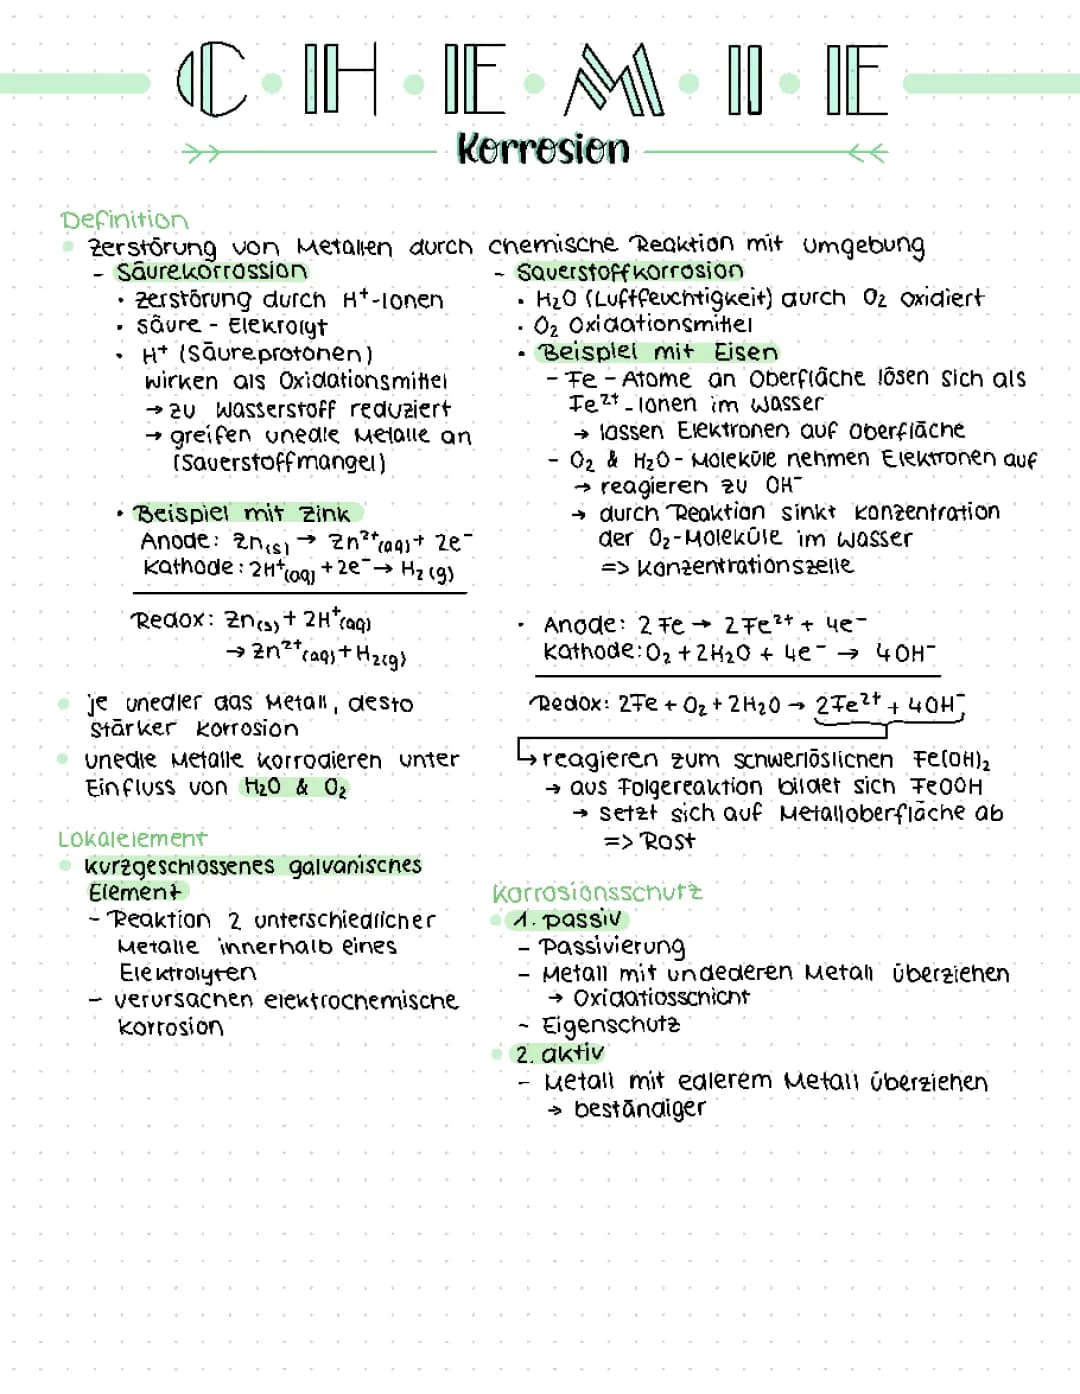 C·H·E·M·I·E
Korrosion
Definition
Zerstörung von Metallen durch chemische Reaktion mit Umgebung
- Säurekorrossion
• Zerstörung durch H⁺-Ionen
• Säure - Elekrolyt
• H⁺ (Säureprotonen)
wirken als Oxidationsmittel
→ zu Wasserstoff reduziert
→ greifen unedle Metalle an
(Sauerstoffmangel)
• Beispiel mit Zink
Anode: Zn(s) → Zn²⁺(aq) + 2e⁻
Kathode: 2H⁺(aq) + 2e⁻ → H₂ (g)
Redox: Zn(s) + 2H⁺(aq)
→ Zn²⁺(aq) + H₂(g)
• je unedler das Metall, desto
stärker Korrosion
• unedle Metalle korrodieren unter
Einfluss von H₂O & O₂
Lokalelement
• kurzgeschlossenes galvanisches
Element
- Reaktion 2 unterschiedlicher
Metalle innerhalb eines
Elektrolyten
- verursachen elektrochemische
Korrosion
- Sauerstoffkorrosion
• H₂O (Luftfeuchtigkeit) durch O₂ oxidiert
• O₂ Oxidationsmittel
• Beispiel mit Eisen
- Fe - Atome an Oberfläche lösen sich als
Fe²⁺-Ionen im Wasser
→ lassen Elektronen auf Oberfläche
- O₂ & H₂O - Moleküle nehmen Elektronen auf
→ reagieren zu OH⁻
→ durch Reaktion sinkt Konzentration
der O₂-Moleküle im Wasser
=> Konzentrationszelle
• Anode: 2 Fe → 2Fe²⁺ + 4e⁻
Kathode: O₂ + 2H₂O + 4e⁻ → 4OH⁻
Redox: 2Fe + O₂ + 2H₂O → 2Fe²⁺ + 4OH⁻
↳ reagieren zum schwerlöslichen Fe(OH)₂
→ aus Folgereaktion bildet sich FeOOH
→ setzt sich auf Metalloberfläche ab
=> Rost
Korrosionsschutz
• 1. passiv
- Passivierung
- Metall mit undederen Metall überziehen
→ Oxidatiosschicht
- Eigenschutz
• 2. aktiv
- Metall mit edlerem Metall überziehen
→ beständiger